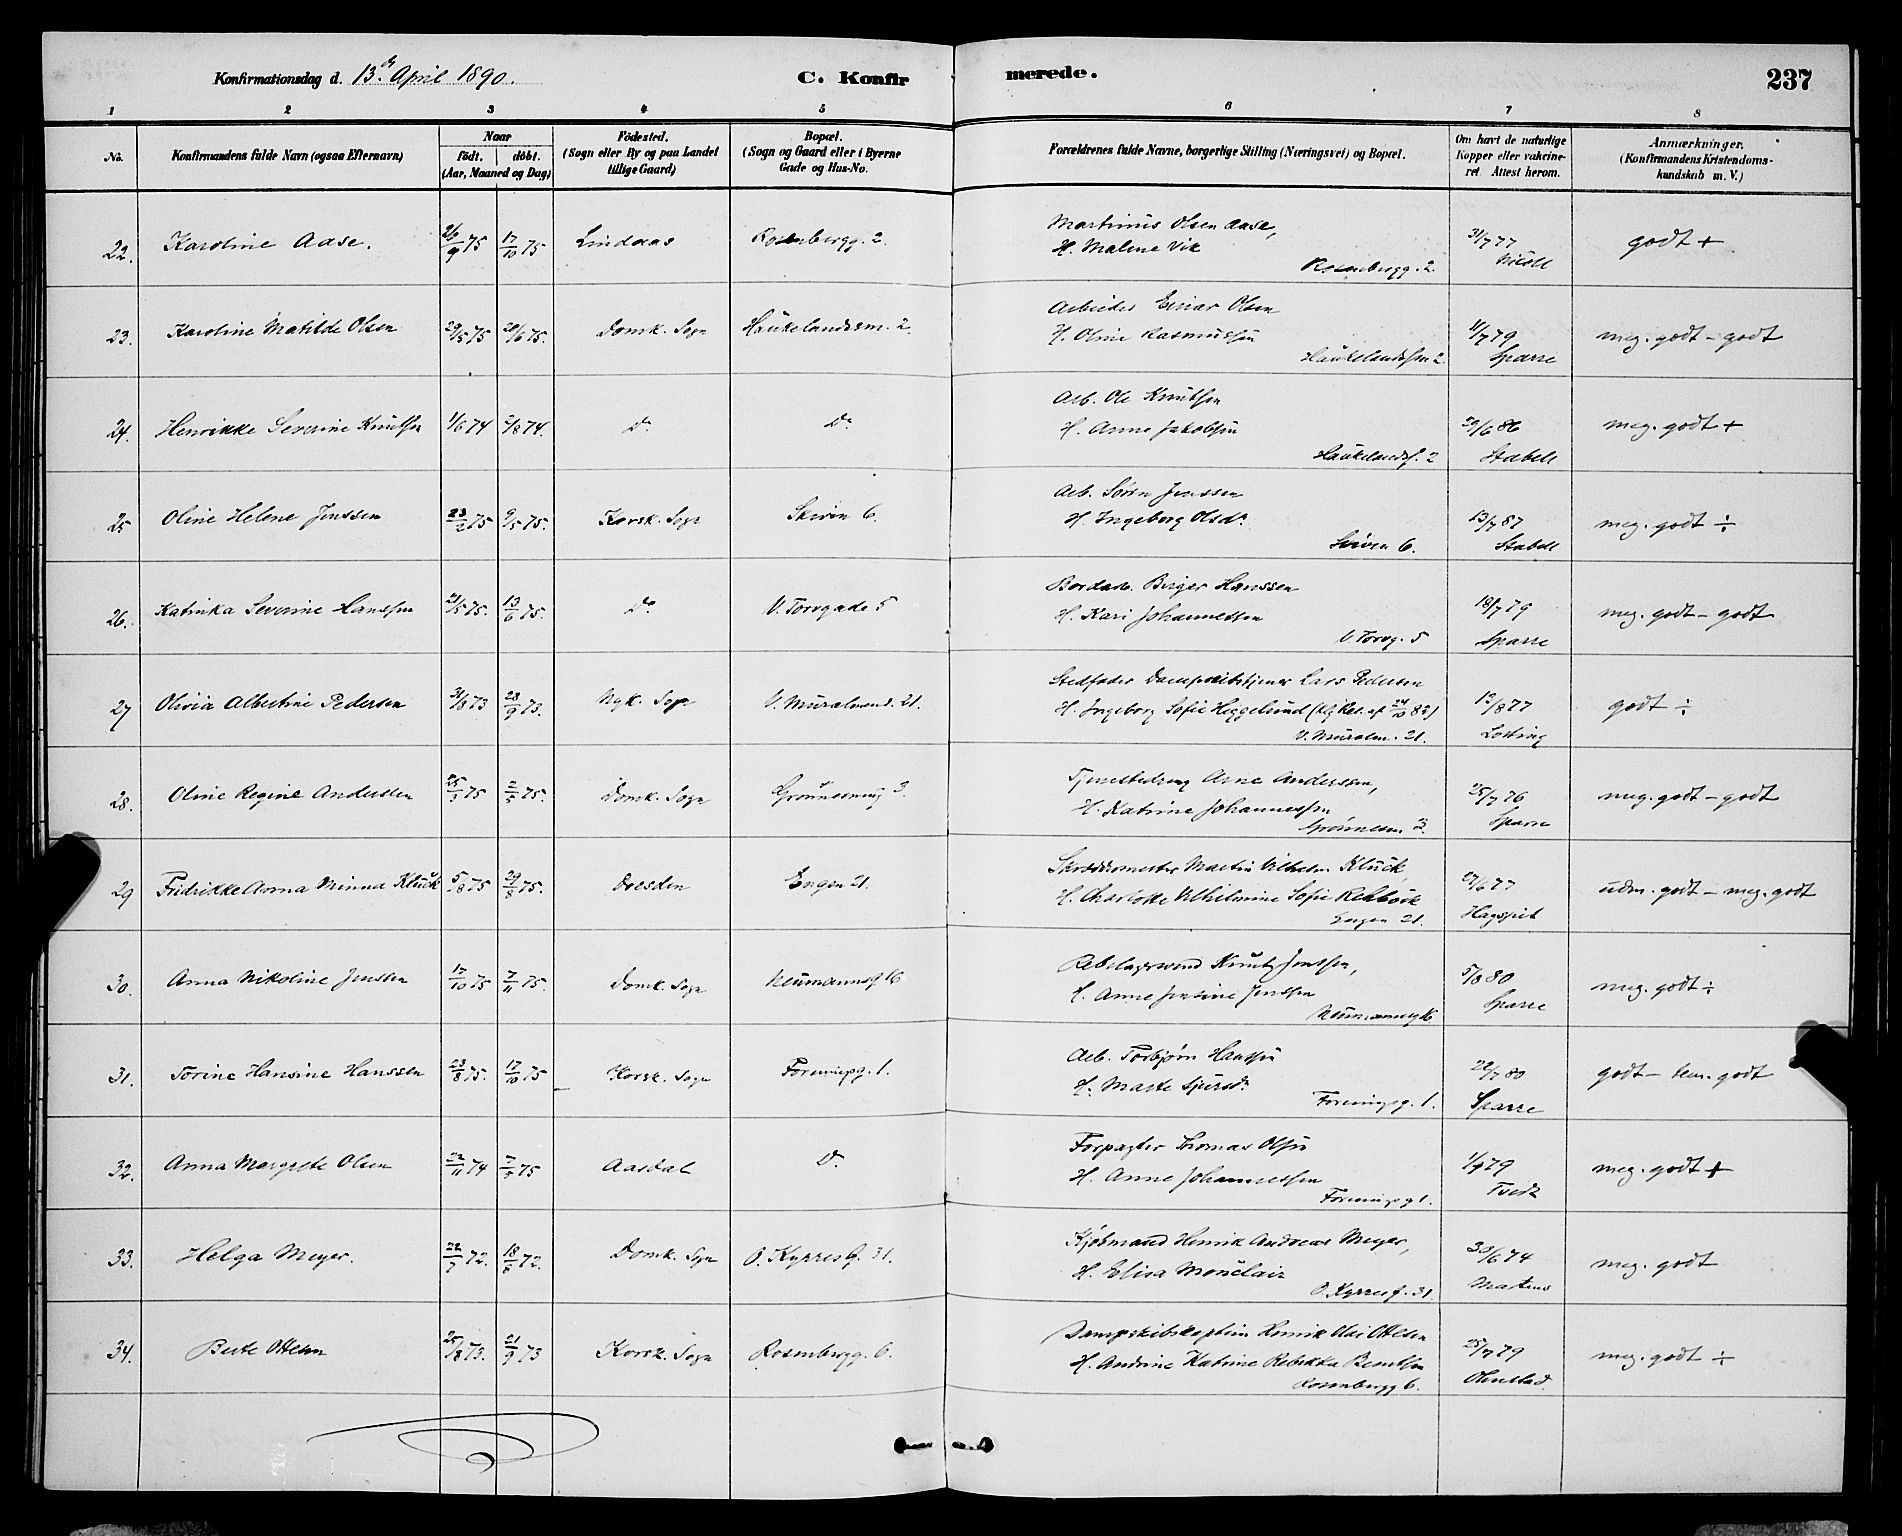 Konfirmationsdag d. 13. April 1890. C. Konfirmerede. 237
1 2 3 4 5 6 7 8
No. Konfirmandens fulde Navn (ogsaa Efternavn) Naar født. døbt. (Aar, Maaned og Dag) Fødested. (Sogn eller By og paa Landet tillige Gaard) Bopæl. (Sogn og Gaard eller i Byerne Gade og Hus-No. Forældrenes fulde Navne, borgerlige Stilling (Næringsvei) og Bopæl. Om havt de naturlige Kopper eller vakcineret. Attest herom. Anmærkninger. (Konfirmandens Kristendomskundskab m. V.)
22. Karoline Aase. 26/9 75 17/10 75 Lindaas Rosenbergg. 2. Martinus Olsen Aase, 31/7 77 godt +
H. Malene Vik
Rosenbergg. 2.
23. Karoline Matilde Olsen 29/5 75 20/6 75. Domk. Sogn Haukelandsm. 2. Arbeider Einar Olsen 11/7 79 meg. godt - godt
H. Oline Rasmussen Sparre
Haukelandsm 2
24. Henrikke Severine Knutsen 1/6 74 2/8 74. Do Do Arb. Ole Knutsen 29/6 86 meg. godt +
H. Anne Jakobsen Stabell
Haukelandsm. 2
25 Oline Helene Jenssen 23/2 75 9/5 75. Korsk. Sogn Skiven 6. Arb. Søren Jenssen 13/7 87 meg. godt ÷
H. Ingeborg Olsdr. Stabell
Skiven 6.
26. Katinka Severine Hanssen 21/5 75. 13/6 75. Do V. Torvgade 5 Birger Hanssen 18/7 79 meg. godt - godt
H. Kari Johannessen Sparre
V. Torvg. 5
27 Olivia Albertine Pedersen 31/8 73 28/9 73. Nyk. Sogn V. Muralmend. 21. Stedfader Dampskibstjener Lars Pedersen 12/8 77 godt ÷
H. Ingeborg Sofie Heggelund (Kgl Res. af 24/10 83) Lotting
V. Muralm. 21.
28. Oline Regine Andersen 25/3 75 2/5 75. Domk. Sogn Grønnesmug 3. Tjenestedreng Arne Anderssen, 25/7 76 meg. godt - godt
H. Katrine Johannessen Sparre
Grønnesm. 3.
29 Fridrikke Anna Minna Klück 5/8 75 29/8 75. Dresden Engen 21. Martin Vilhelm Klück, 27/6 77 udm. godt - meg. godt
H. Charlotte Vilhelmine Sofie Rehbock
Engen 21.
30. Anna Nikoline Jenssen 17/10 75 7/11 75. Domk. Sogn Neumannsg 16 Knut Jenssen, 5/8 80 meg. godt ÷
H. Anne Jensine Jenssen Sparre
Neumannsg 16
31. Torine Hansine Hanssen 23/8 75. 17/10 75 Korsk. Sogn Foreningsg. 1. Arb. Torbjørn Hanssen 22/7 80 godt - tem. godt
H. Marte Sjursdr. Sparre
Foreningsg. 1.
32. Anna Margrete Olsen 22/11 74 Aardal Do Forpagter Thomas Olsen 1/7 79 meg. godt +
H. Anne Johannessen Tvedt
Foreningsg 1.
33. Helga Meyer. 22/7 72. 18/8 72. Domk. Sogn O. Kyrresg. 31. Kjøbmand Henrik Andreas Meyer, 30/6 74 meg. godt
H. Elisa Monclair Martens
O. Kyrresg. 31.
34. Berte Ottesen 25/8 73. 21/9 73 Korsk. Sogn Rosenbergg. 6. Dampskibskaptein Henrik Ottesen 25/7 79 meg. godt ÷
H. Andrine Katrine Rebekka Berntsen Olmstad
Rosenbergg 6.